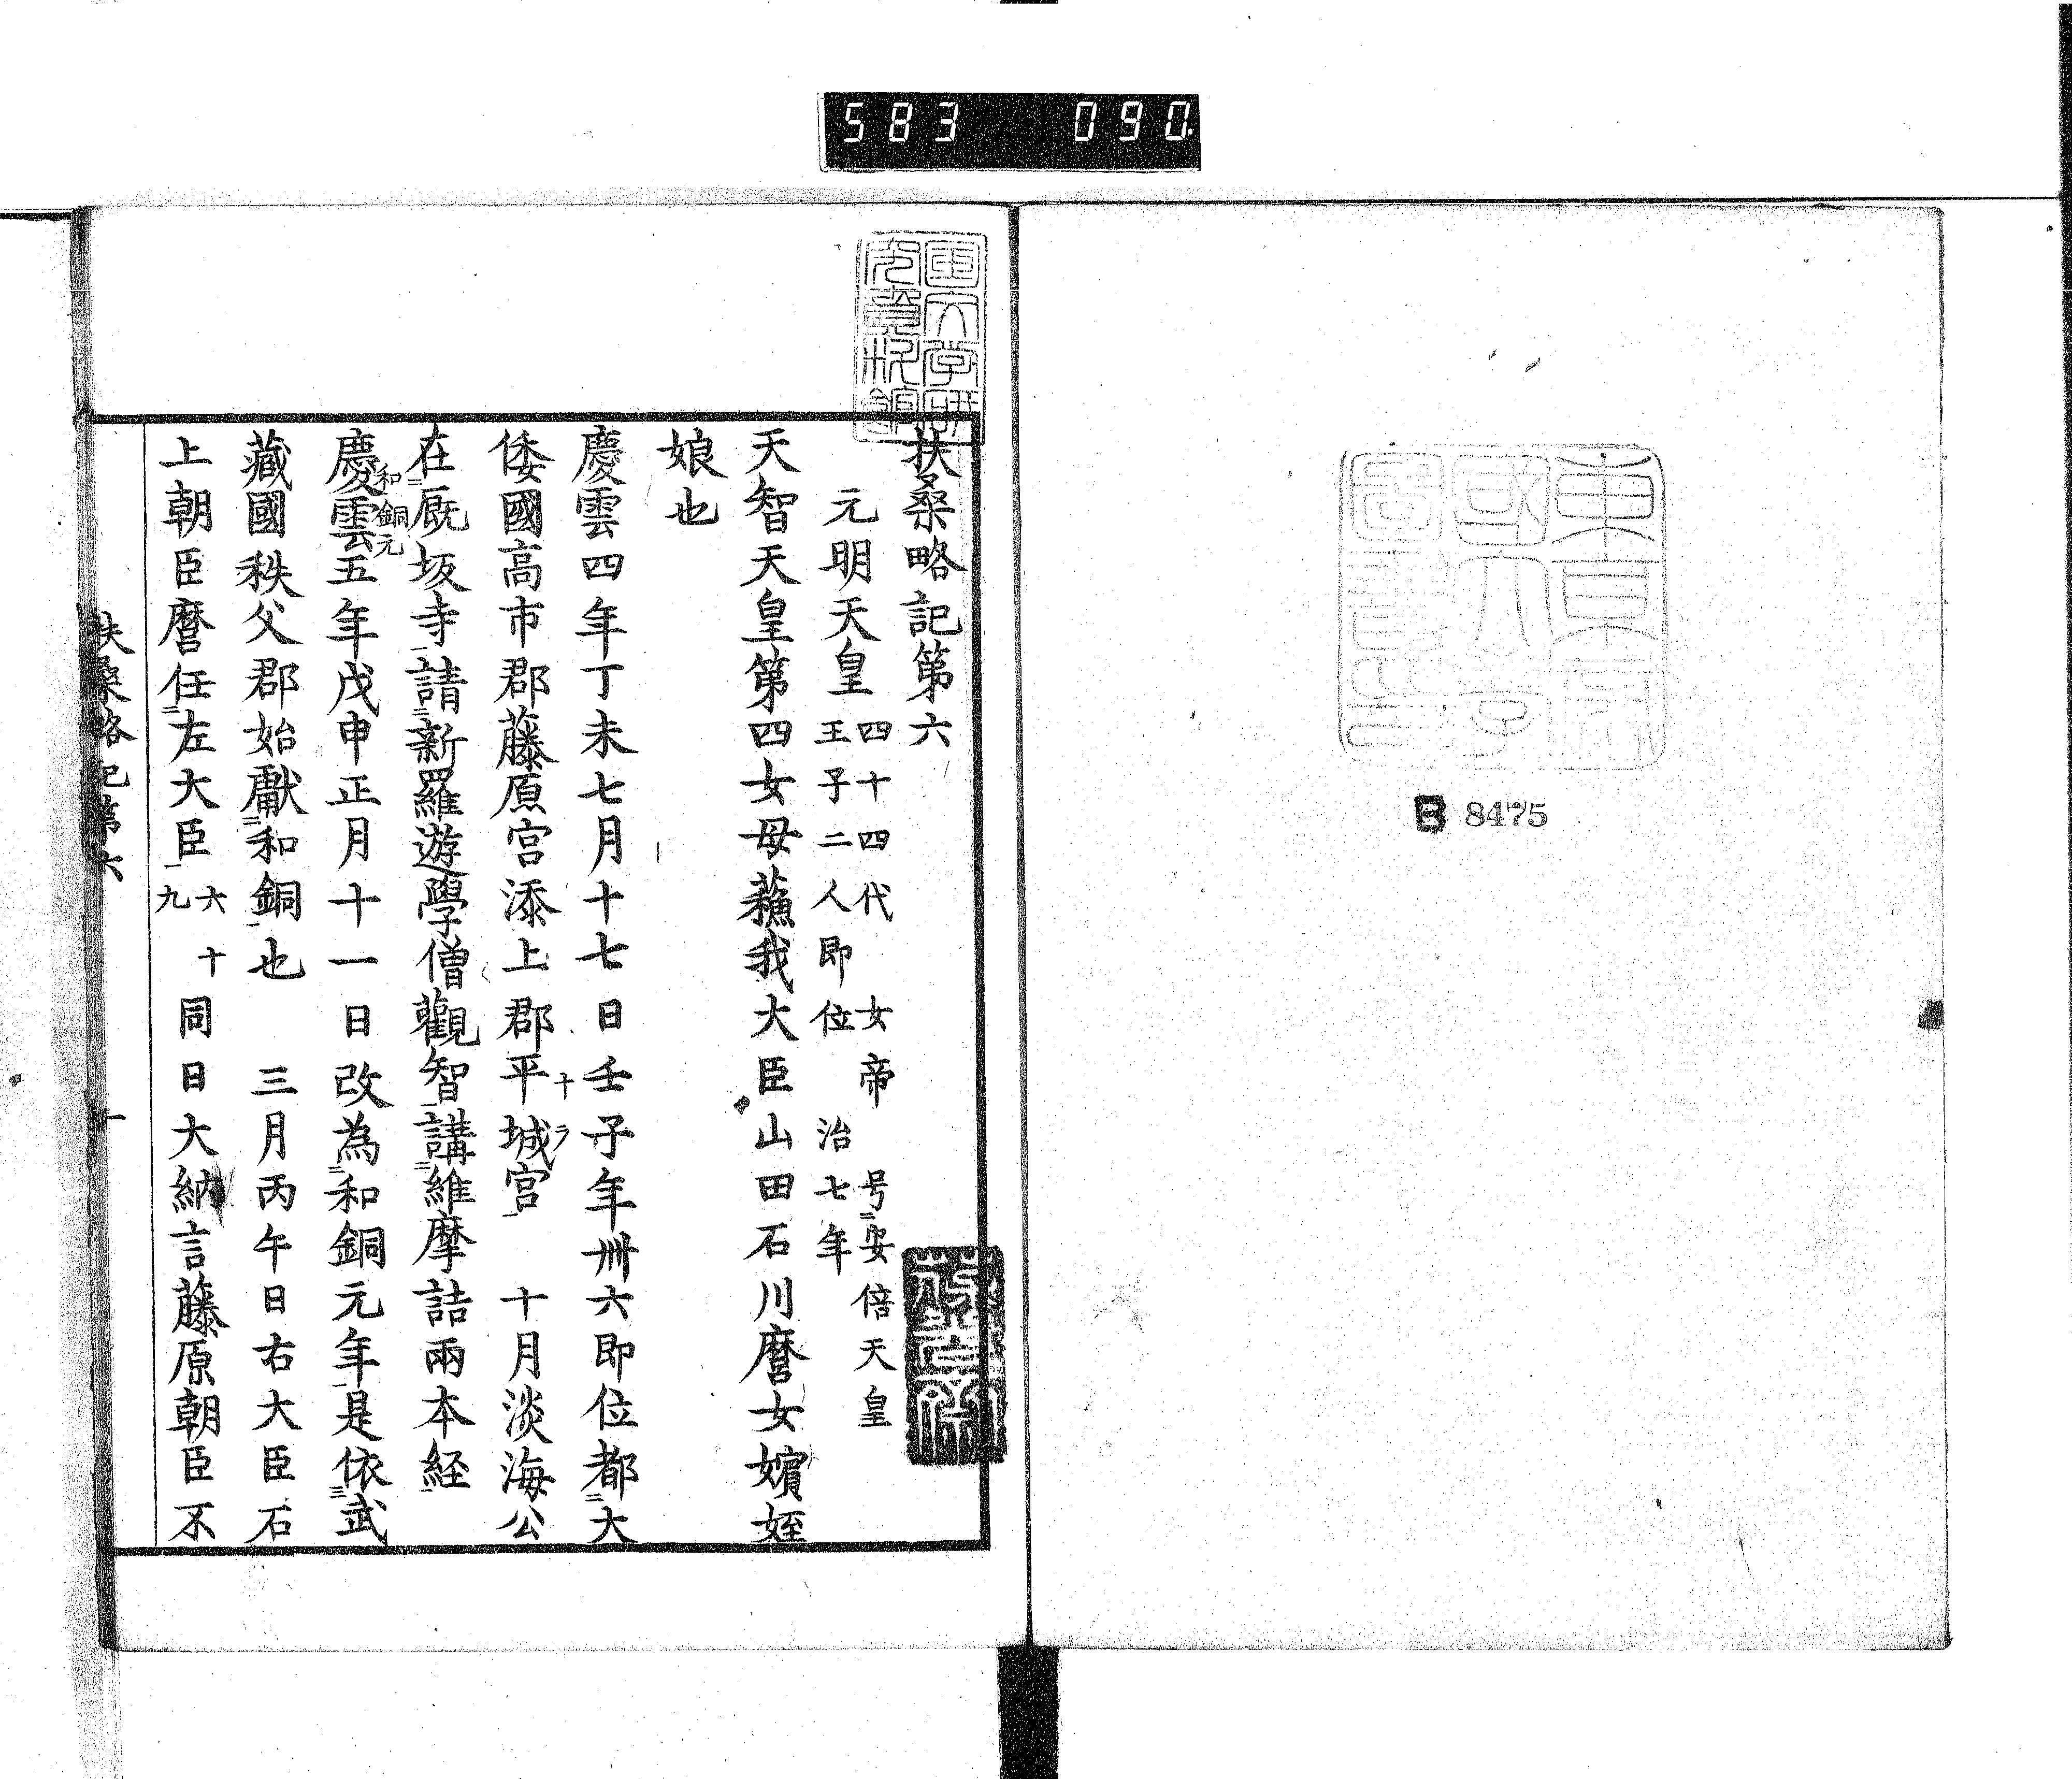 583 090
東京
B 8475
扶桑略記第六
元明天皇 四十四代 女帝 号安倍天皇
王子二人即位 治七年
天智天皇第四女母蘓我大臣山田石川麿女嬪姪
娘也
慶雲四年丁未七月十七日壬子年卅六即位都大
倭國高市郡藤原宮添上郡平城宮 十月淡海公
十ラ
在厩坂寺請新羅遊學僧觀智講維摩詰兩本経
和銅元
慶雲五年戊申正月十一日改為和銅元年是依武
藏國秩父郡始獻和銅也 三月丙午日右大臣石
上朝臣麿任左大臣 六十九 同日大納言藤原朝臣不
扶桑略記第六
一